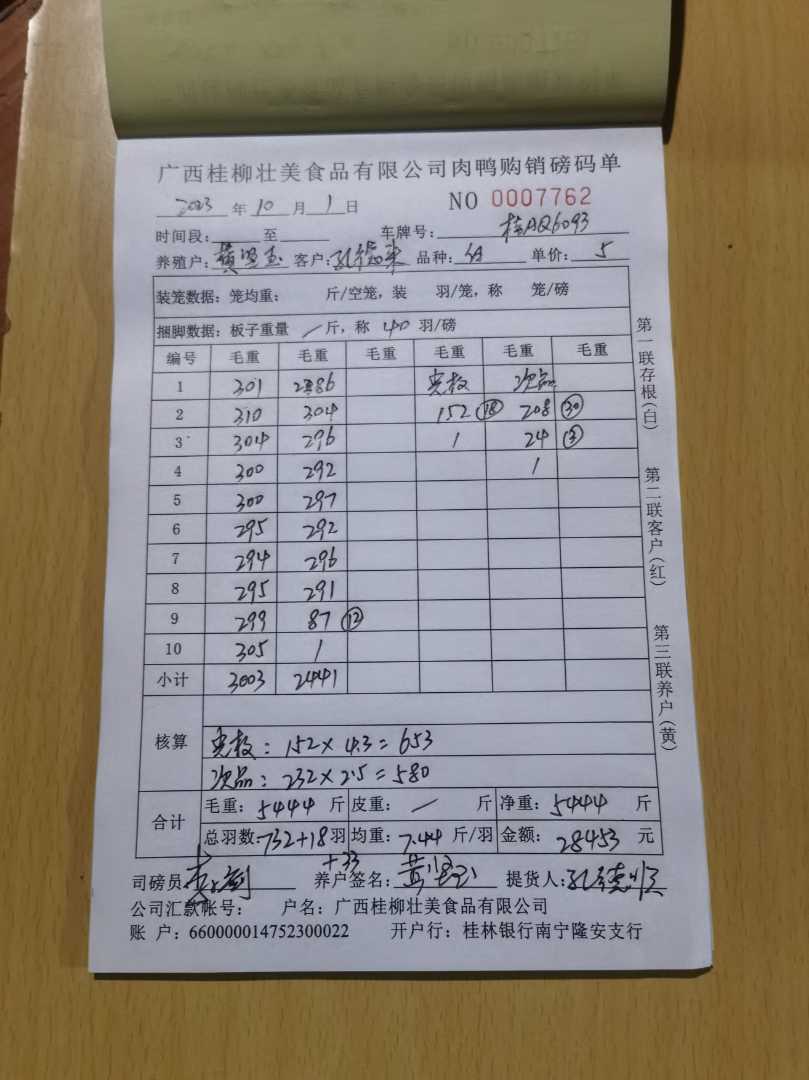 广西桂柳壮美食品有限公司肉鸭购销磅码单
2023 年 10 月 1 日 NO 0007762
时间段: 至 车牌号: 桂AQ6093
养殖户: 黄坚玉 客户: 品种: 单价: 5
装笼数据: 笼均重: 斤/空笼, 装 羽/笼, 称 笼/磅
捆脚数据: 板子重量 / 斤, 称 40 羽/磅
编号 毛重 毛重 毛重 毛重 毛重 毛重
1 301 286 次品
2 310 304 152 ⑱ 208 ㉚
3 304 296 1 24 ③
4 300 292 1
5 300 297
6 295 292
7 294 296
8 295 291
9 299 87 ⑫
10 305 1
小计 3003 2441
核算
: 152 × 4.3 = 653
次品: 232 × 2.5 = 580
合计
毛重: 5444 斤 皮重: / 斤 净重: 5444 斤
总羽数: 732+18 羽 均重: 7.44 斤/羽 金额: 28453 元
+33
司磅员 养户签名: 黄坚玉 提货人:
公司汇款帐号: 户名: 广西桂柳壮美食品有限公司
账 户: 660000014752300022 开户行: 桂林银行南宁隆安支行
第一联存根(白)
第二联客户(红)
第三联养户(黄)